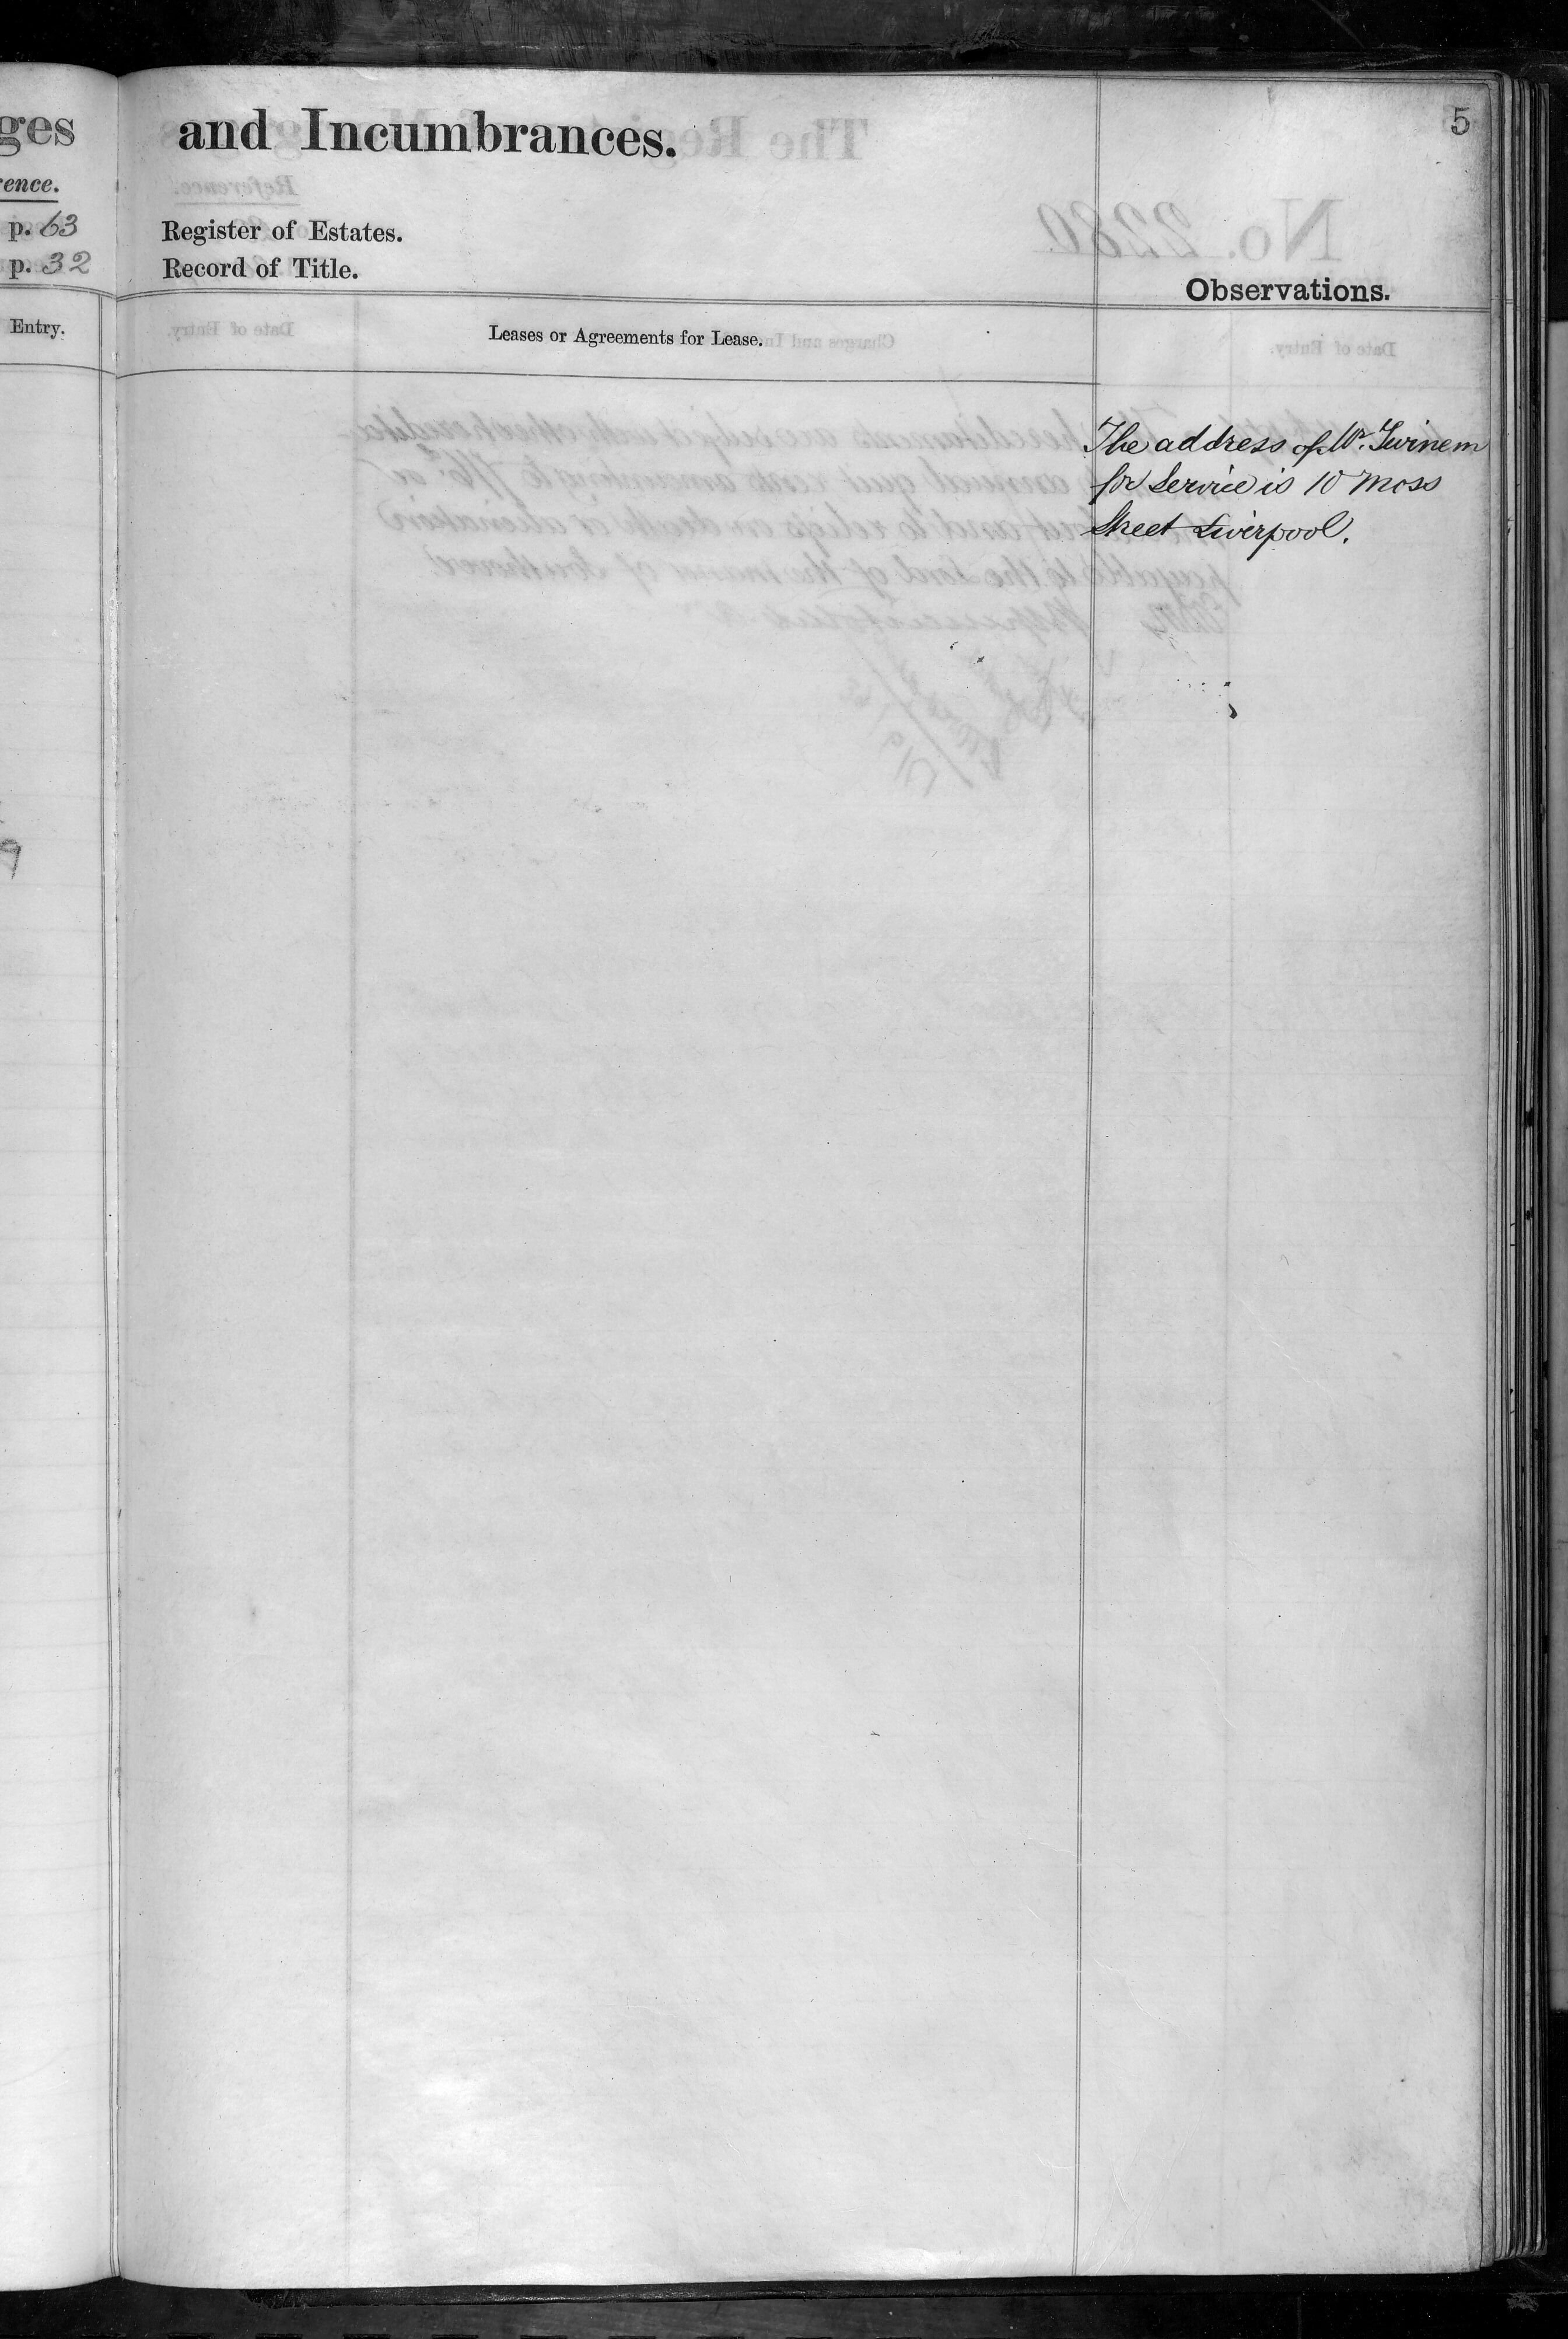 ges
rence.
p. 63
p. 32
Entry.
9
and Incumbrances.
5
Register of Estates.
Record of Title.
Observations.
Leases or Agreements for Lease.
The address of Mr. Twinem
for Service is 10 Moss
Street Liverpool.